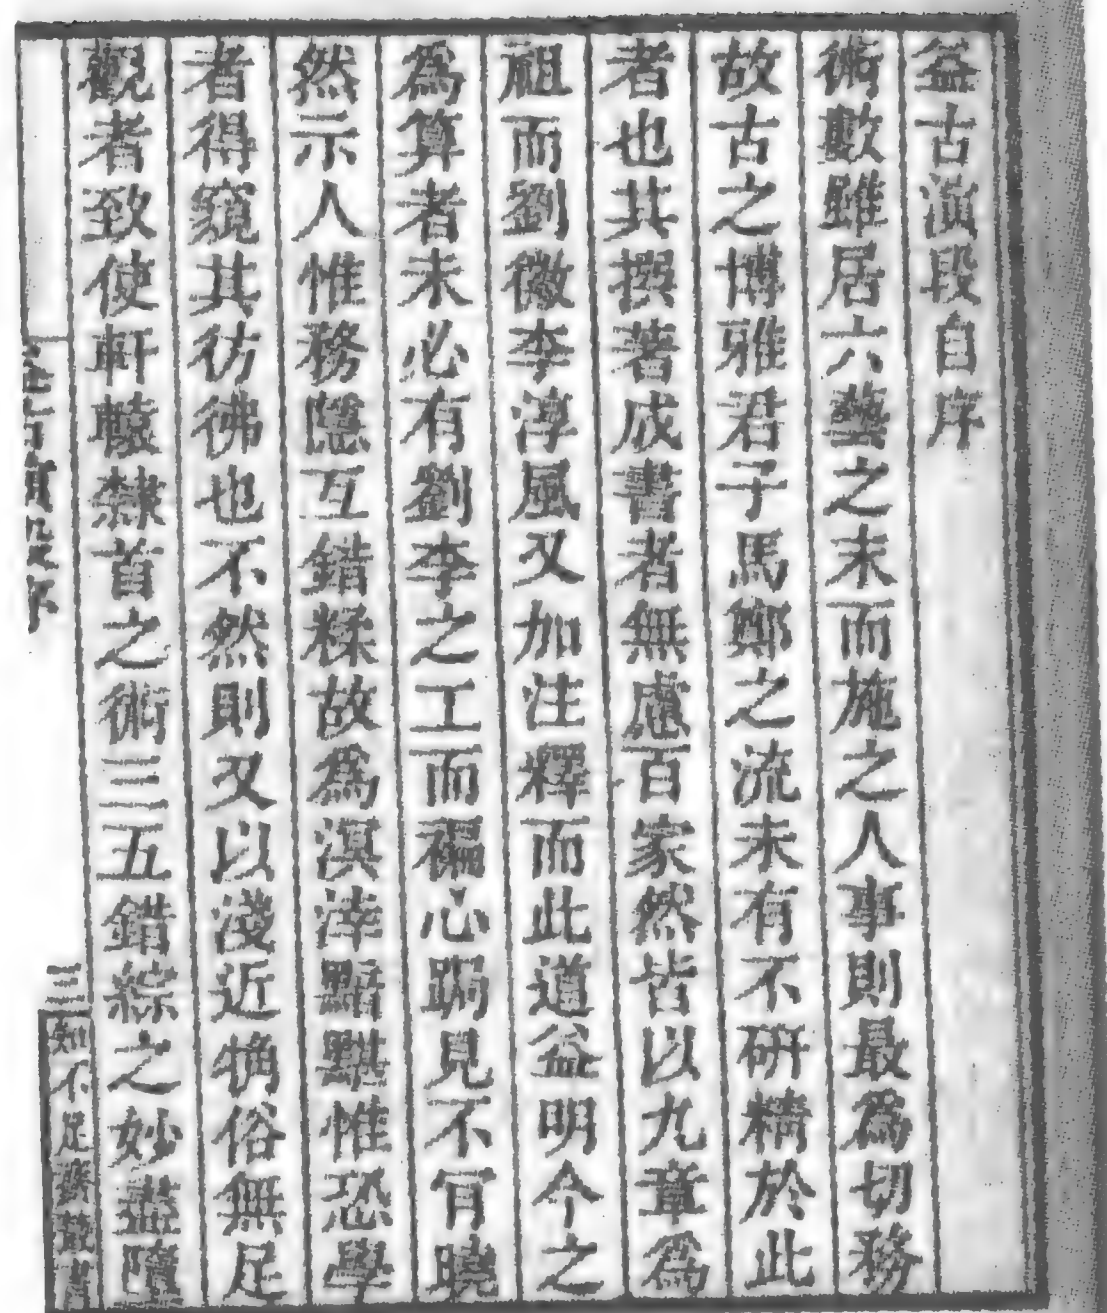 益古演段自序
術數雖居六藝之末而施之人事則最爲切務
故古之博雅君子馬鄭之流未有不研精於此
者也其撰著成書者無慮百家然皆以九章爲
祖而劉徽李淳風又加注釋而此道益明今之
爲算者未必有劉李之工而褊心跼見不肯曉
然示人惟務隱互錯糅故爲溟涬黯黮惟恐學
者得窺其彷彿也不然則又以淺近觕俗無足
觀者致使軒轅隸首之術三五錯綜之妙盡墮
知不足齋叢書